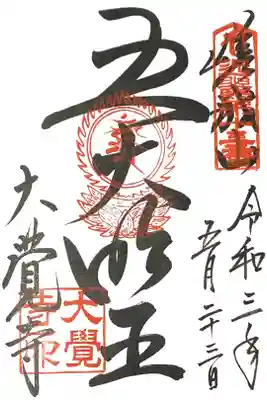 嵯峨山
令和三年
五月二十三日
五大明王
大覺寺
大覺
寺印